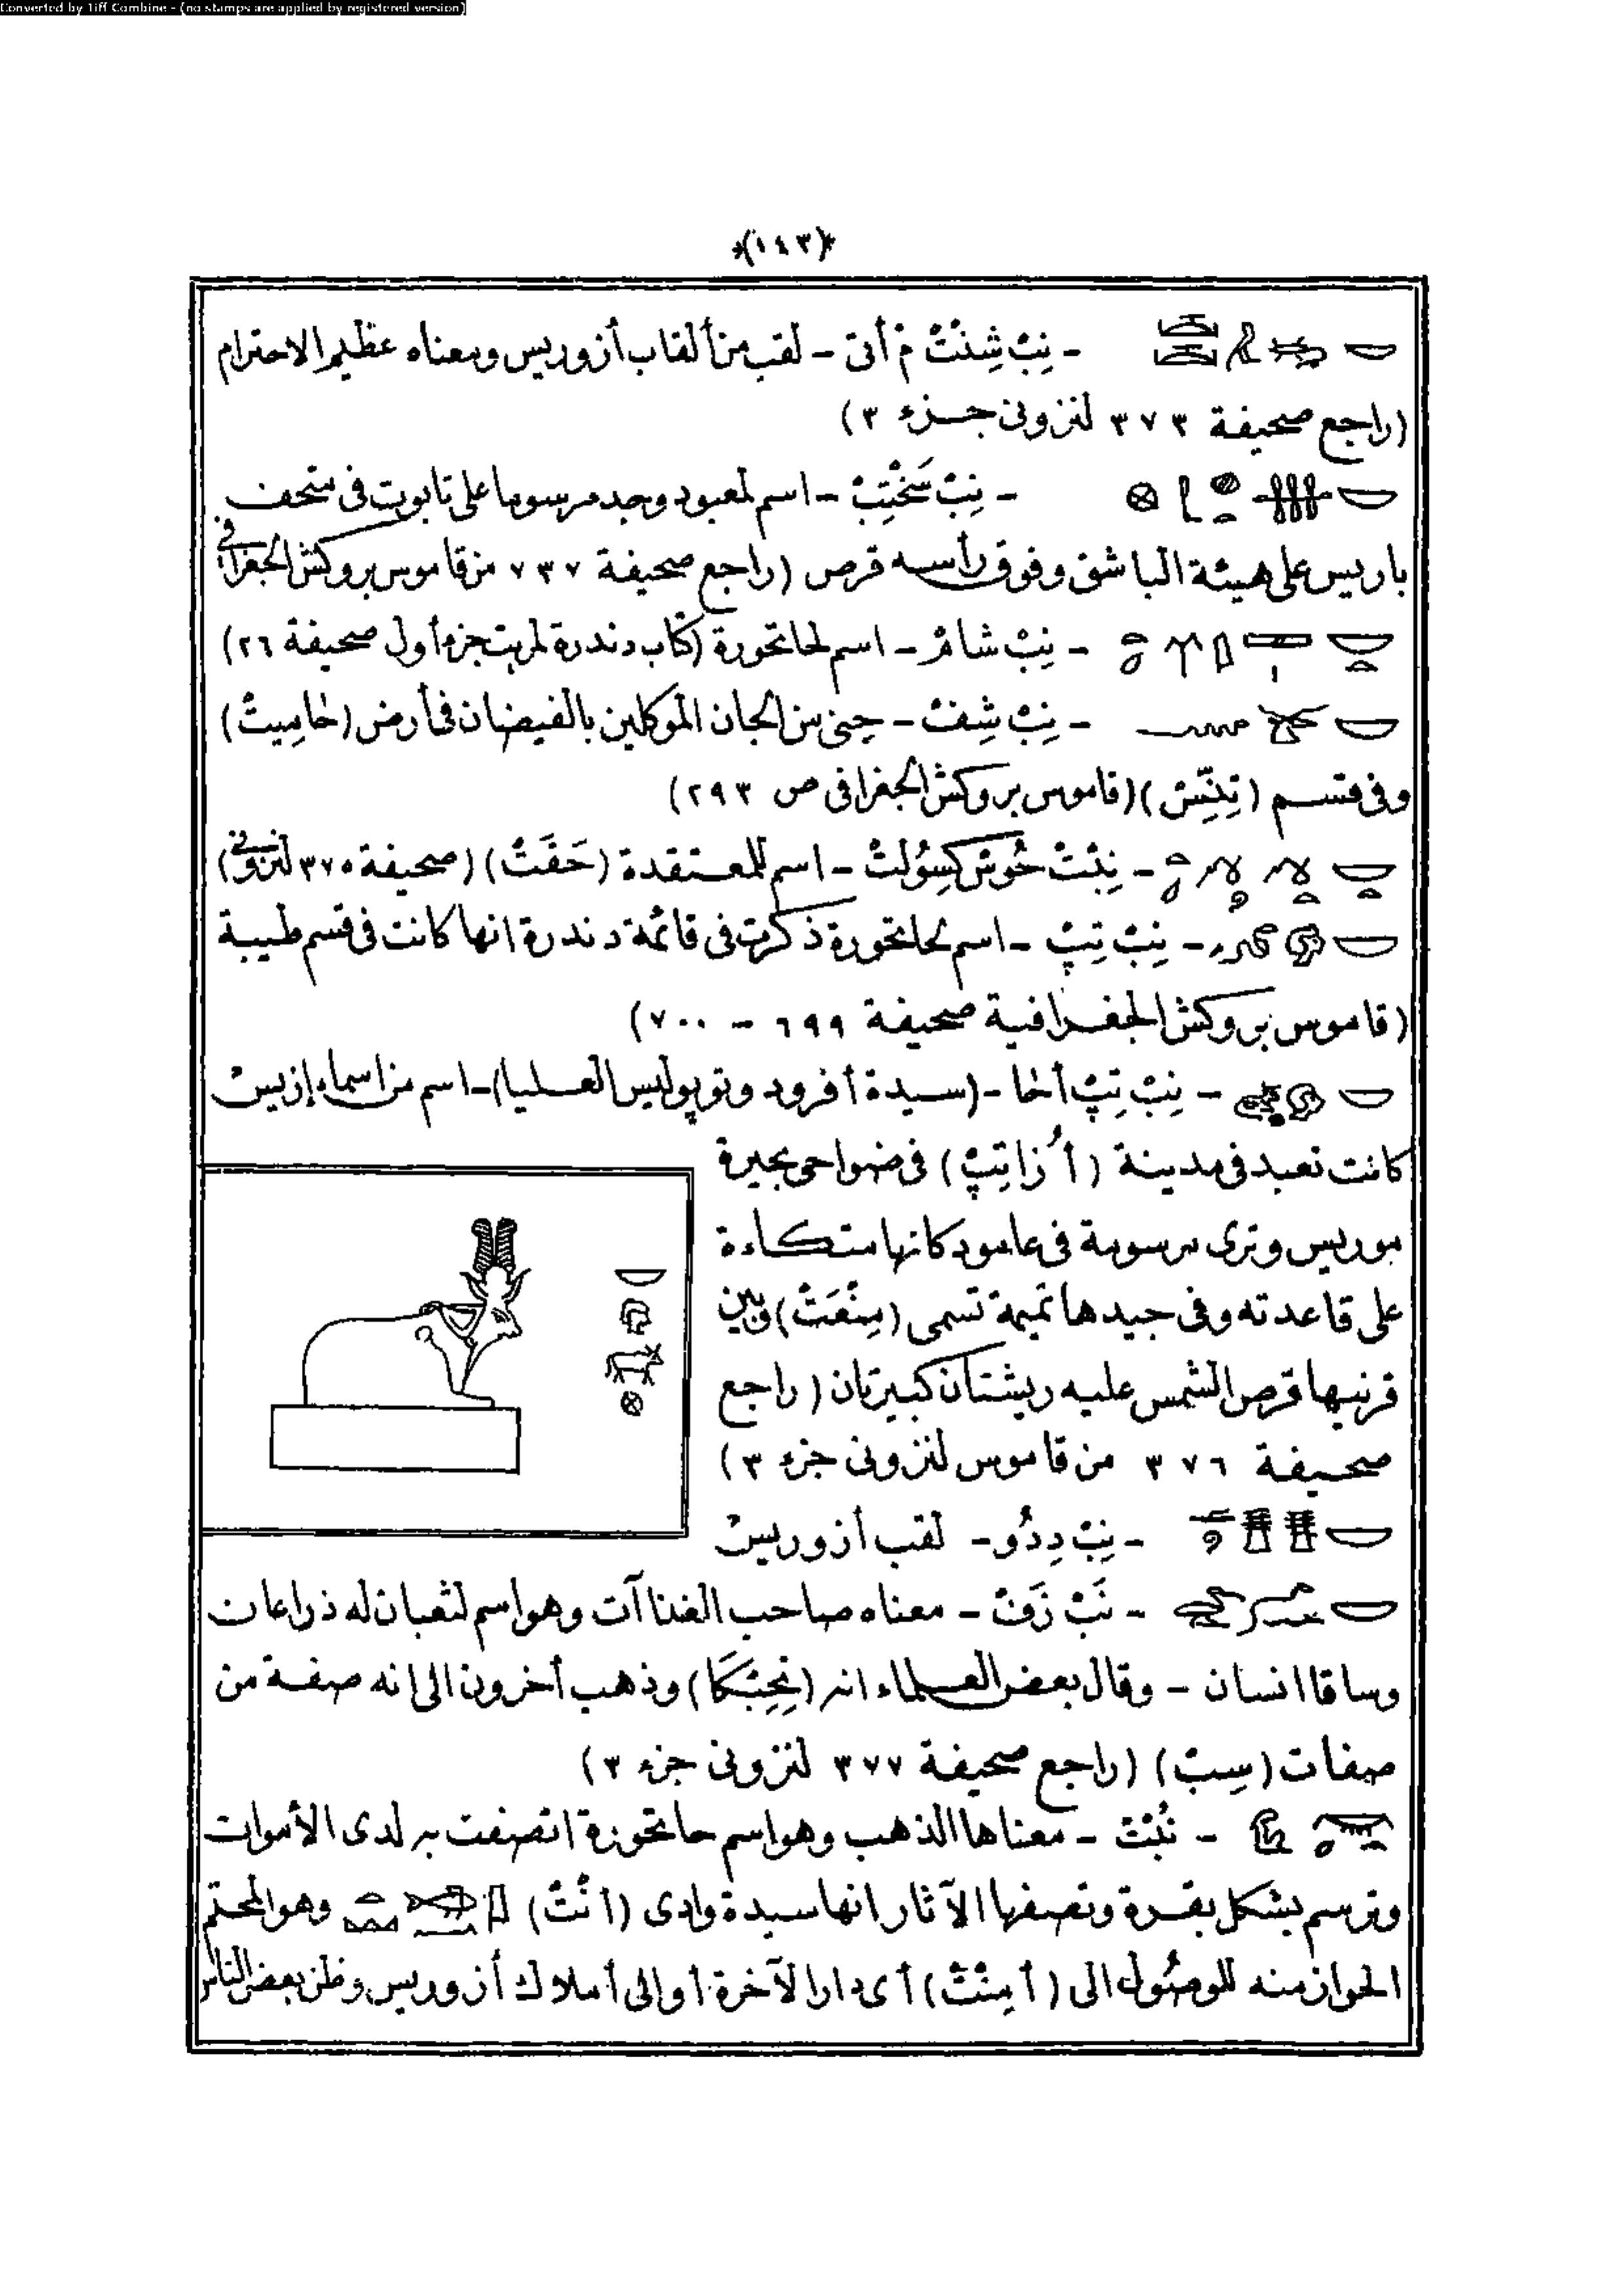 Converted by Tiff Combine - (no stamps are applied by registered version)
(١٤٣)
- نِبْ شِنْتْ مْ أتى - لقب من ألقاب أزوريس ومعناه عظيم الاحترام
(راجع صحيفة ٣٧٣ لنزونى جزء ٣)
- نِبْ سَخْتِبْ - اسم لمعبود وجد مرسوما على تابوت فى متحف
باريس على هيئة الباشق وفوق رأسه قرص (راجع صحيفة ٧٣٧ من قاموس بروكش الجغرافى
- نِبْ شامْ - اسم لحاتحورة (كتاب دندرة لمريت جزء أول صحيفة ٢٦)
- نِبْ شِفْ - جنى من الجان الموكلين بالفيضان فى أرض (خاميت)
وفى قسم (تنتس) (قاموس بروكش الجغرافى ص ٢٩٣)
- نِبْتْ خُوسْ كِسُولتْ - اسم للمعتقدة (حَقَتْ) (صحيفة ٣٧٥ لنزونى)
- نِبْ تِپْ - اسم لحاتحورة ذكرت فى قائمة دندرة انها كانت فى قسم طيبة
(قاموس بروكش الجغرافية صحيفة ٦٩٩ - ٧٠٠)
- نِبْ تِپْ أخا - (سيدة أفرود وتوپوليس العليا) - اسم من اسماء إزيس
كانت تعبد فى مدينة (أُزاتِپْ) فى ضواحى بحيرة
موريس وترى مرسومة فى عامود كانها متكاءة
على قاعدته وفى جيدها تميمة تسمى (مِنْعَتْ) وبين
قرنيها قرص الشمس عليه ريشتان كبيرتان (راجع
صحيفة ٣٧٦ من قاموس لنزونى جزء ٣)
- نِبْ دِدُو - لقب أزوريس
- نَبْ زَوْ - معناه صاحب الفناآت وهو اسم لثعبان له ذراعان
وساقا انسان - وقال بعض العلماء انه (نِحِبْكَا) وذهب أخرون الى انه صفة من
صفات (سِبْ) (راجع صحيفة ٣٧٧ لنزونى جزء ٣)
- نُبْتْ - معناها الذهب وهو اسم حاتحورة اتصفت به لدى الأموات
وترسم بشكل بقرة وتصفها الآثار انها سيدة وادى (انْتْ) وهو المحتم
الجواز منه للوصُول الى (أمِنْتْ) أى دار الآخرة أو الى أملاك أزوريس وظن بعض الناس